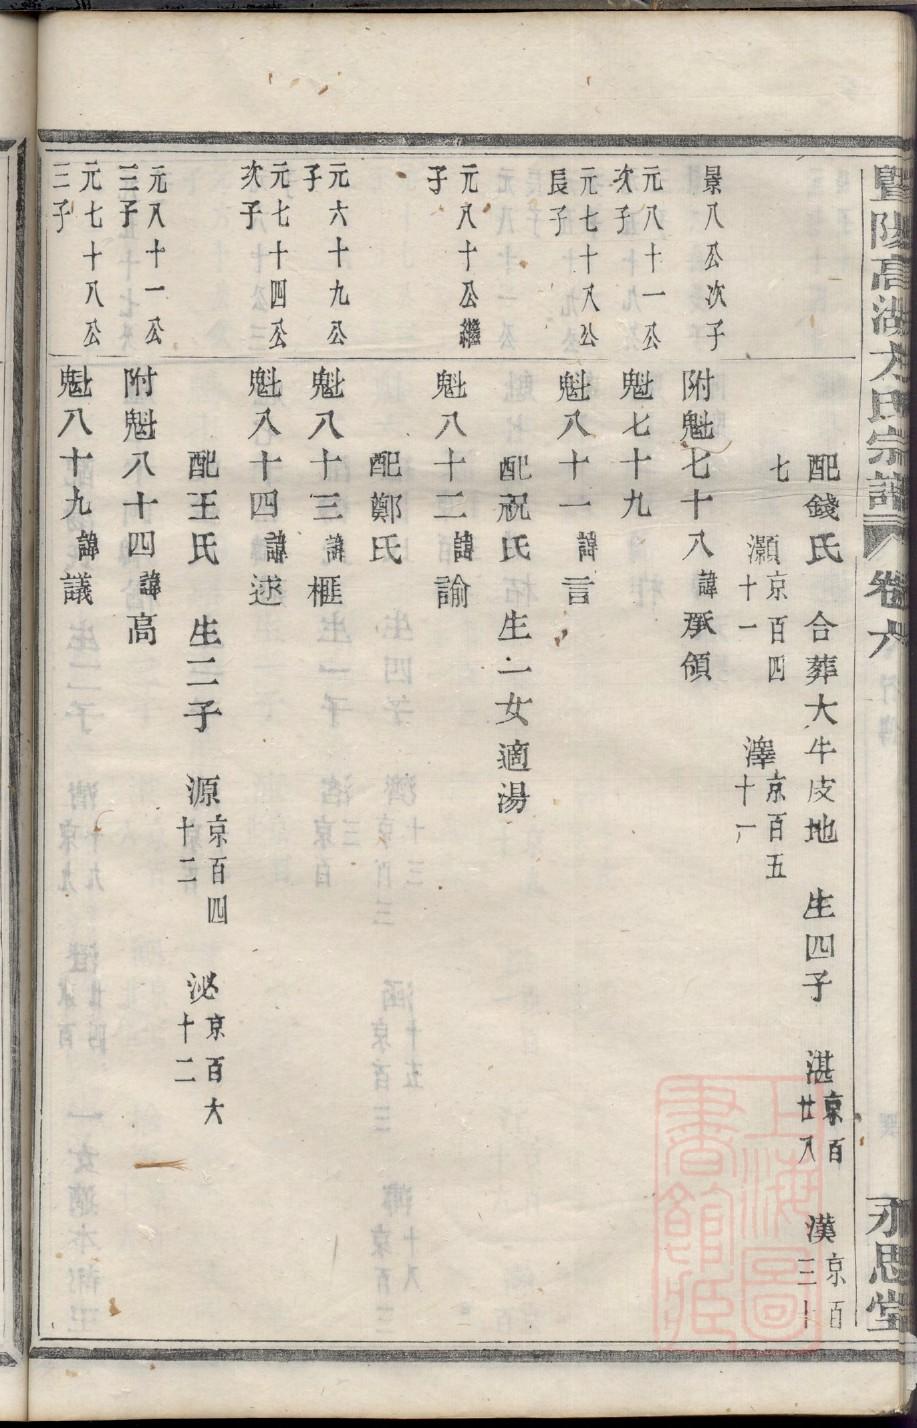 暨陽高湖方氏宗譜 卷六 永思堂
配錢氏 合葬大牛皮地 生四子 湛京百廿八 漢京百三十
七 灝京百四十一 澤京百五十一
景八公次子 附魁七十八諱承領
元八十一公次子 魁七十九
元七十八公長子 魁八十一諱言
配祝氏 生一女適湯
元八十公繼子 魁八十二諱諭
配鄭氏
元六十九公子 魁八十三諱榧
元七十四公次子 魁八十四諱逑
配王氏 生二子 源京百四十二 泌京百六十二
元八十一公三子 附魁八十四諱高
元七十八公三子 魁八十九諱議
上海圖書館藏